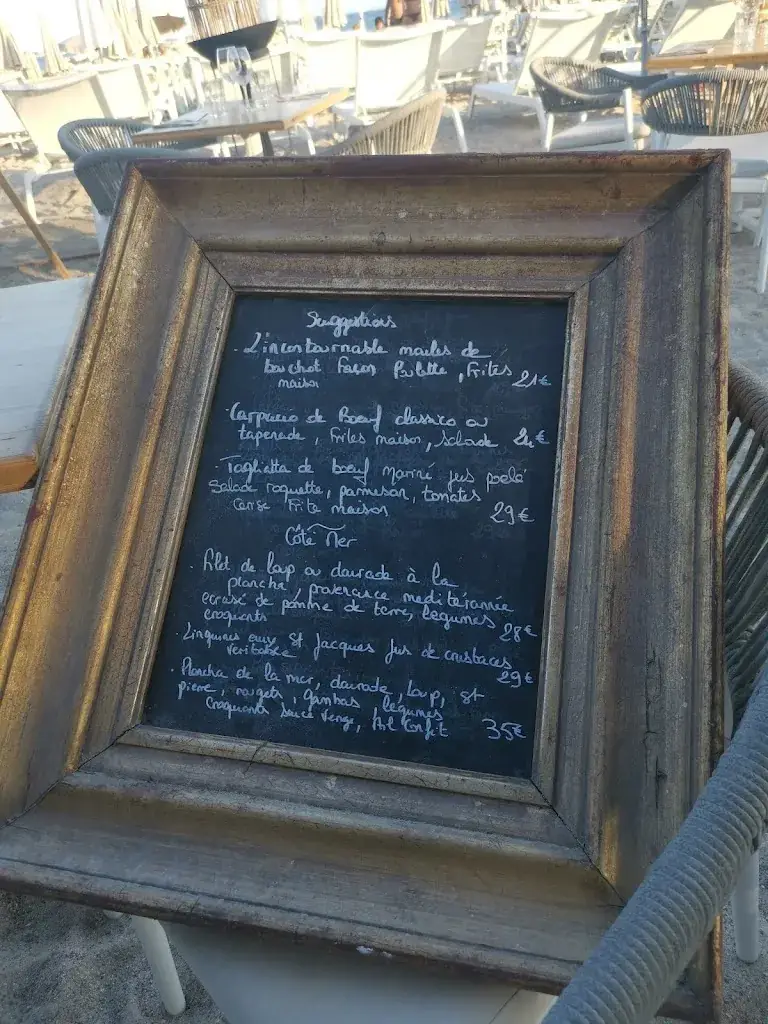 Suggestions
. L'incontournable moules de
bouchot Façon Poulette, Frites
maison 21€
. Carpaccio de Boeuf classico ou
tapenade, Frites maison, Salade 24€
. Tagliatta de boeuf mariné jus poelé
Salade roquette, parmesan, tomates
cerise Frite maison 29€
Côté Mer
. Filet de loup ou daurade à la
plancha, provenance mediterannée
ecrasé de pomme de terre, legumes
croquants 28€
. Linguines aux St Jacques Jus de crustaces
veritable 29€
. Plancha de la mer, daurade, loup, st
pierre, rougets, gambas, legumes
Croquants sauce vierge, Ail Confit 35€